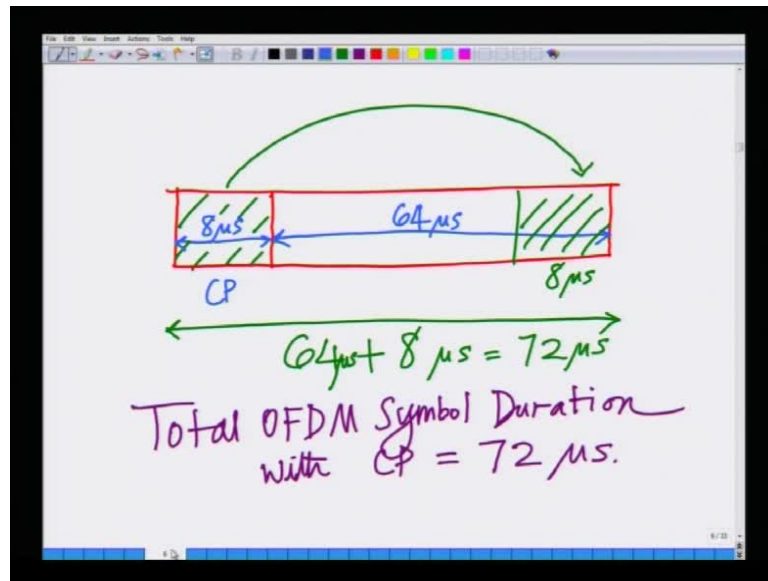 File Edit View Insert Actions Tools Help
B I
8μs
64μs
CP
8μs
64μs + 8 μs = 72μs
Total OFDM Symbol Duration
with CP = 72 μs.